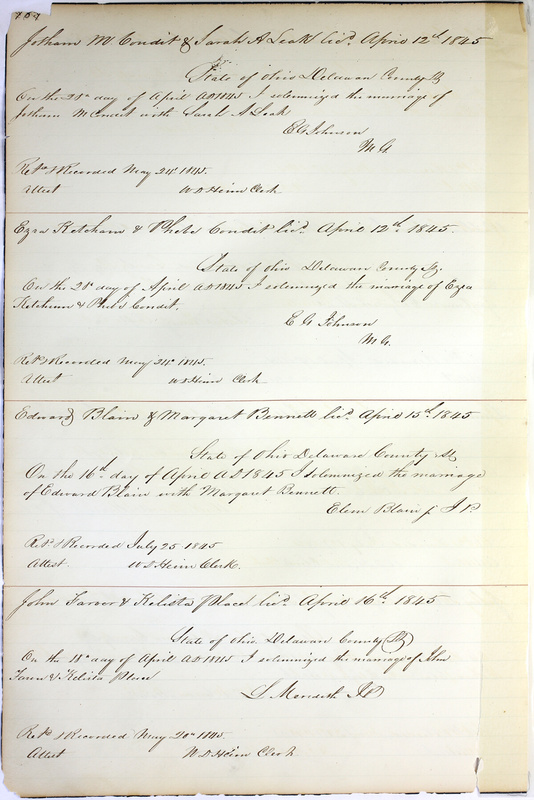 Jotham M. Condit & Sarah A Leak licd April 12th 1845
State of Ohio Delaware County Ss
On the 28th day of April AD 1845 I solemnized the marriage of
Jotham M Condit with Sarah A Leak
E G Johnson
M G.
Retd & Recorded May 24th 1845.
Attest W D Heim Clerk
Ezra Ketcham & Phebe Condit licd April 12th 1845.
State of Ohio Delaware County Ss.
On the 28th day of April AD 1845 I solemnized the marriage of Ezra
Ketchum & Phebe Condit.
E G Johnson
M G.
Retd & Recorded May 24th 1845.
Attest W D Heim Clerk
Edward Blain & Margaret Bennett licd April 15th 1845
State of Ohio Delaware County Ss
On the 16th day of April AD 1845 I solemnized the marriage
of Edward Blain with Margaret Bennett.
Blain J P
Retd & Recorded July 25 1845
Attest W D Heim Clerk.
John & Kelista Place licd April 16th 1845
State of Ohio Delaware County Ss
On the 18th day of April AD 1845 I solemnized the marriage of John
& Kelista Place
S Meredith JP
Retd & Recorded May 20th 1845.
Attest W D Heim Clerk